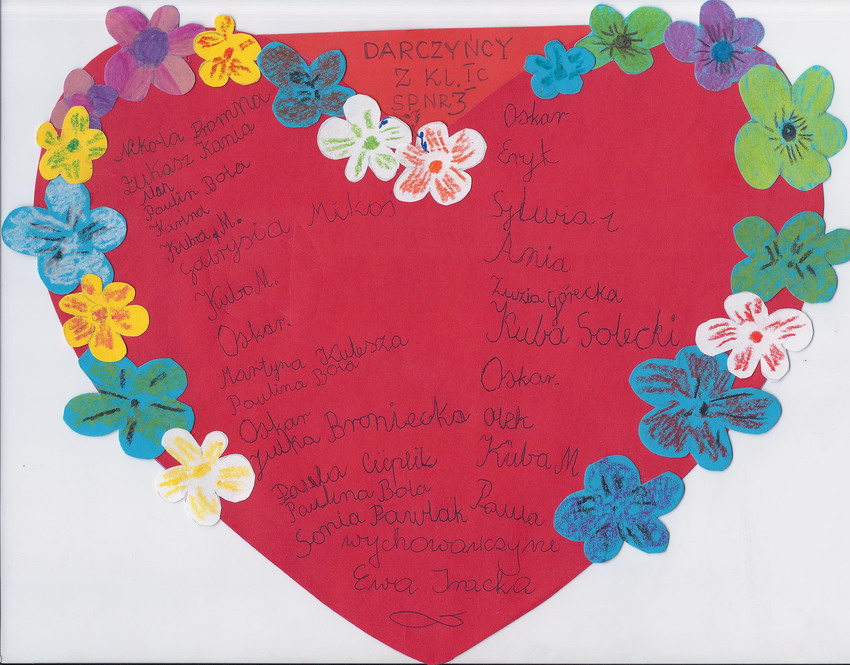 DARCZYŃCY
Z KL. IC
SP. NR 3
Nikola Bromna
Łukasz Kania
Jan
Paulin Bola
Karina
Kuba M.
Gabrysia Mikos
Kuba M.
Oskar.
Martyna Kulesza
Paulina Bola
Oskar
Julka Broniecka
Paula Cieplik
Paulina Bola
Sonia Pawlak
Oskar
Eryk
Sylwia
Ania
Zuzia Górecka
Kuba Solecki
Oskar.
Olek
Kuba M
Paula
wychowawczyni
Ewa Iracka